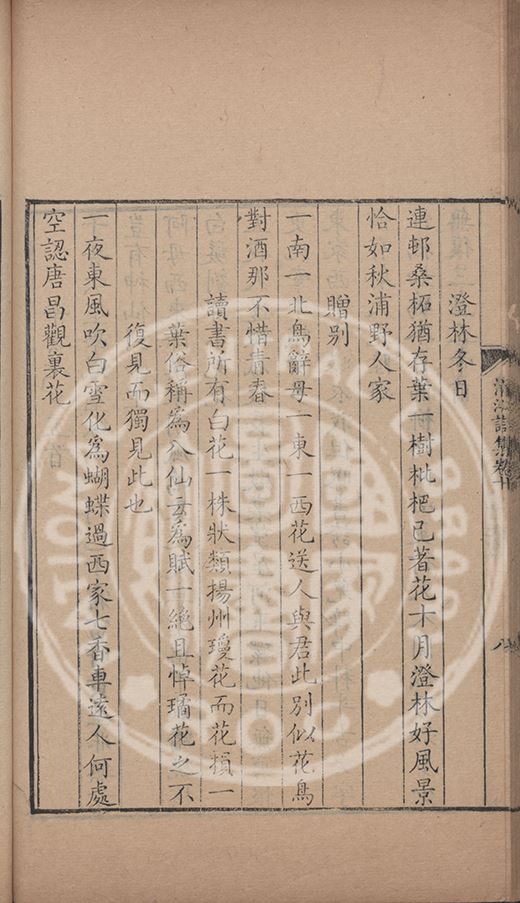 澄林冬日
連邨桑柘猶存葉一樹枇杷已著花十月澄林好風景
恰如秋浦野人家
贈別
一南一北鳥辭母一東一西花送人與君此別似花鳥
對酒那不惜青春
讀書所有白花一株狀類揚州瓊花而花損一
葉俗稱為八仙云為賦一絶且悼璚花之不
復見而獨見此也
一夜東風吹白雪化為蝴蝶過西家七香車遠人何處
空認唐昌觀裏花